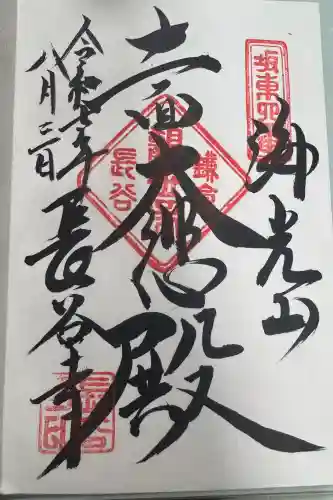 坂東四番
海光山
十一面大悲殿
鎌倉
長谷
令和七年
八月三日
長谷寺